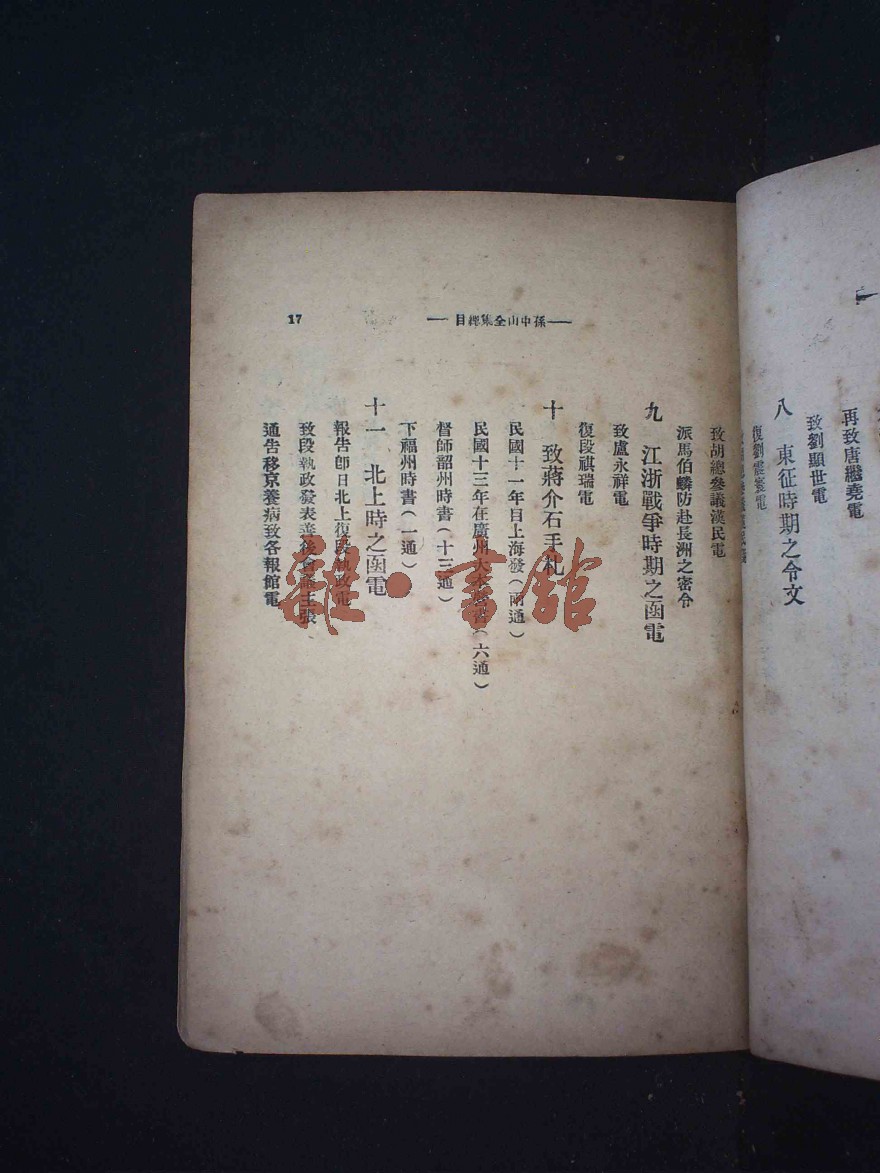 再致唐繼堯電
致劉顯世電
八 東征時期之令文
復劉震寰電
17
孫中山全集總目
致胡總參議漢民電
派馬伯麟防赴長洲之密令
九 江浙戰爭時期之函電
致盧永祥電
復段祺瑞電
十 致蔣介石手札
民國十一年目上海發(兩通)
民國十三年在廣州大本營書(六通)
督師韶州時書(十三通)
下福州時書(一通)
十一 北上時之函電
報告卽日北上復段執政電
致段執政發表善後會議主張
通告移京養病致各報館電
雜·書館